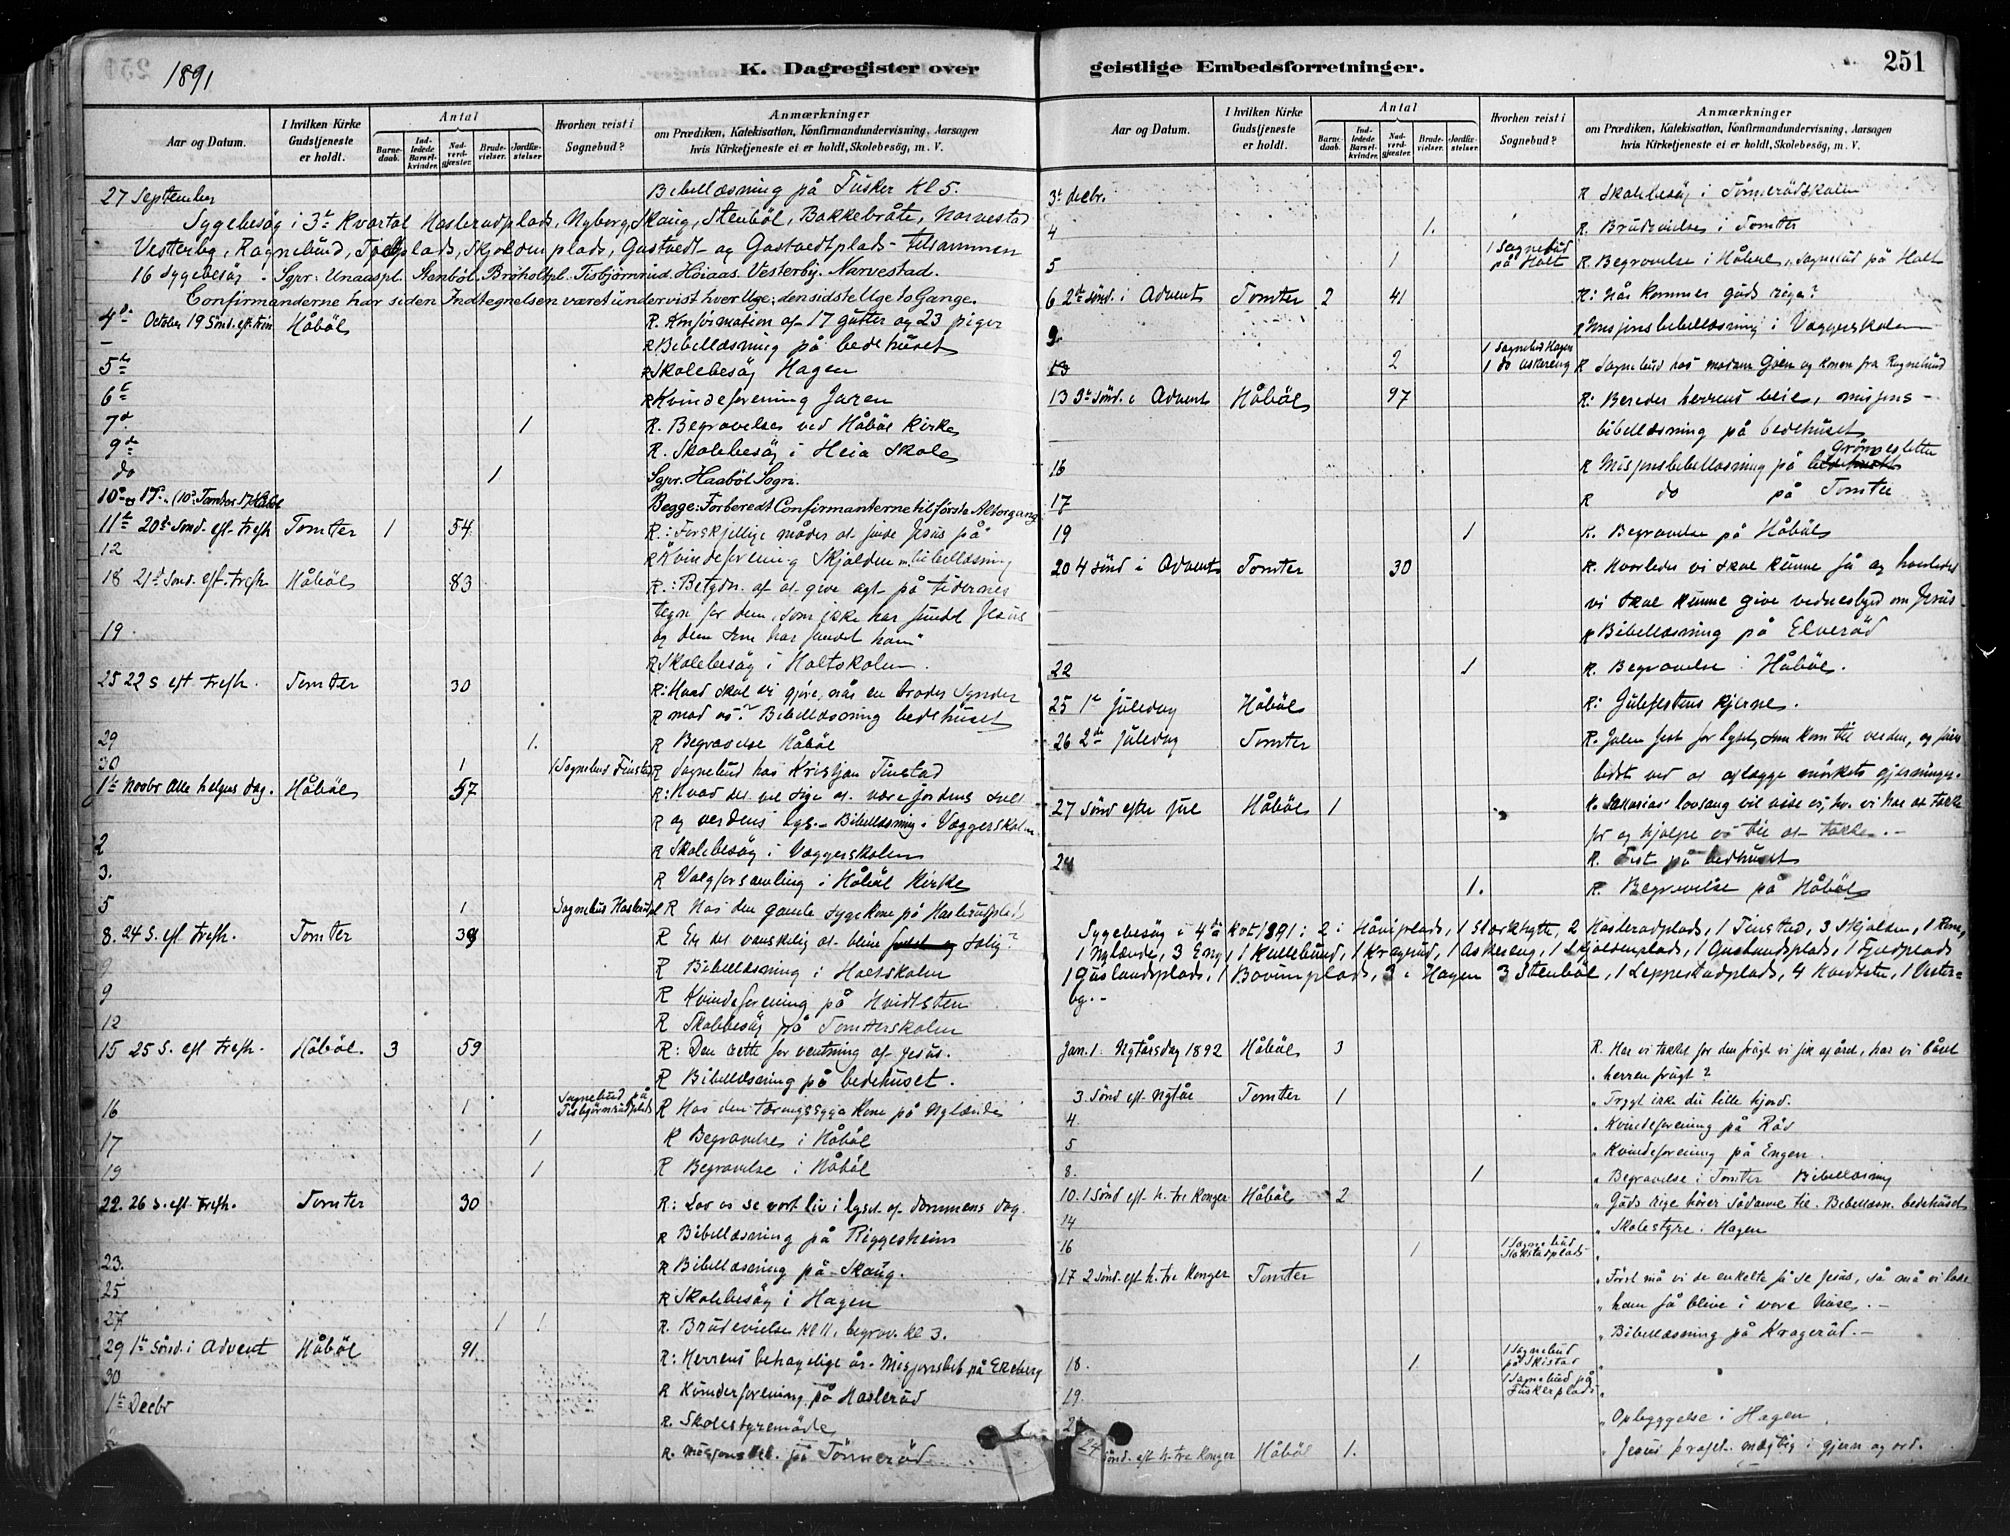 1891
K. Dagregister over
Aar og Datum.
I hvilken Kirke Gudstjeneste er holdt.
Antal
Barnedaab.
Indledede Barselkvinder.
Nadverdgjæster.
Brudevielser.
Jordfæstelser.
Hvorhen reist i Sognebud?
Anmærkninger
om Prædiken, Katekisation, Konfirmandundervisning, Aarsagen
hvis Kirketjeneste ei er holdt, Skolebesög, m. V.
27 September Bibellæsning på Tusker Kl 5.
Sygebesøg i 3die Kvartal Haslerudplads, Nyborg, Skaug, Stenböl, Bakkebråte, Narvestad
Vesterby, Ragnebund, plads, Skjolden plads, Gustvedt og Gastvedtplads - tilsammen
16 sygebesøg - Sgpr: Unaaspl. Stenböl. Brøholtpl. Tisbjørnrud. Høiaas. Vesterby. Narvestad.
Confirmanderne har siden Indtegnelsen været undervist hver Uge; den sidste Uge to Gange.
4de October 19 Sönd. eft. trin Håböl R. Konfirmation af 17 gutter og 23 piger
– R Bibellæsning på bedehuset
5te R Skolebesøg Hagen
6te R Kvindeforening Jaren
7de 1 R. Begravelse ved Håböl Kirke
9de R. Skolebesøg i Heia Skole
do 1 Sgpr. Haaböl Sogn.
10de og 17de (10de Tomter 17de Haaböl Begge: Forberedt Confirmanterne til förste Altergang
11te 20de Sönd. eft. trefh Tomter 1 54 R.: Forskjellige måder at finde Jesus på
12 R Kvindeforening Skjolden m. bibellæsning
18 21de Sönd. eft. trefh. Håböl 83 R.: Betydn. af at give agt på tidernes
tegn for dem, som ikke har fundet Jesus
19. og dem som har fundet ham"
R Skolebesøg i Holtskolen.
25 22 S eft trefh. Tomter 30 R: Hvad skal vi gjøre, når en broder synder
R mod os? Bibellæsning bedehuset
29 1. R Begravelse Håböl
30 1 1 Sognebud Finstad R Sognebud hos Kristjan Finstad
1te Novbr Alle helgens dag. Håböl 57 R: Hvad det vil sige at være jordens salt
R og verdens lys. - Bibellæsning i Vaggerskolen
2 R Skolebesøg i Vaggerskolen
3. R Valgforsamling i Håböl Kirke
5 1 Sognebud Haslerud R Hos den gamle syge kone på Haslerudplads
8. 24 S. eft trefh. Tomter 38 R Er det vanskelig at blive salig?
R Bibellæsning i Holtskolen
9 R Kvindeforening på Hvidtsten
12 R Skolebesøg på Tomterskolen
15 25 S. eft trefh. Håböl 3 59 R: Den rette forventning af Jesus.
R Bibellæsning på bedehuset.
16 1 Sognebud på Tisbjørnrudplads R Hos den tæringssyge kone på Nylænde
17 1 R Begravelse i Håböl
19 1 R Begravelse i Håböl
22. 26 S. eft. trefh. Tomter 30 R: Lad os se vort liv i lyset af dommens dag.
R Bibellæsning på Riggesheim
23. R Bibellæsning på Skaug.
25 R Skolebesøg i Hagen
27 1 1 R. Brudevielse Kl 11, begrav. Kl 3.
29 1te Sönd. i Advent Håböl 91 R: Herrens behagelige år. Misjonsbib. på Ekeberg
30 R Kvindeforening på Haslerud
1te Decbr R. Skolestyremöde
R. Misjonsbib. på Törnerød
geistlige Embedsforretninger.
251
Aar og Datum.
I hvilken Kirke Gudstjeneste er holdt.
Antal
Barnedaab.
Indledede Barselkvinder.
Nadverdgjæster.
Brudevielser.
Jordfæstelser.
Hvorhen reist i Sognebud?
Anmærkninger
om Prædiken, Katekisation, Konfirmandundervisning, Aarsagen
hvis Kirketjeneste ei er holdt, Skolebesög, m. V.
3de decbr. R Skolebesøg i Törnerødskolen
4 1. R. Brudevielse i Tomter
5 1 1 Sognebud på Holt R. Begravelse i Håböl, Sognebud på Holt
6 2de sönd. i Advent Tomter 2 41 R: Når kommer guds rige?
9. R Misjonsbibellæsning i Vaggerskolen
13 2 1 Sognebud Hagen 1 do Askereng R Sognebud hos madam Goen og konen fra Ragnebund
13 3de sönd. i Advent Håböl 97 R: Bereder herrens veie, misjons-
bibellæsning på bedehuset
16 R Misjonsbibellæsning på Grönnesletta
17 R do på Tomter
19 1 R. Begravelse på Håböl
20 4 sönd i Advent Tomter 30 R. Hvorledes vi skal kunne få og hvorledes
vi skal kunne give vidnesbyrd om Jesus
R Bibellæsning på Elverød
22 1 R. Begravelse i Håböl.
25 1te Juledag Håböl R: Julefestens kjerne.
26 2den Juledag Tomter R. Julen fest for lyset, som kom til verden, og
bedst ved at aflægge mörkets gjerninger.
27 sönd efter jul Håböl 1 R. Sakarias' lovsang vil vise os, hv. vi har at takke
for og hjælpe os til at takke. -
R. Fest på bedhuset
1. R. Begravelse på Håböl
Sygebesøg i 4de Kvt 1891: 2 i Håviplads, 1 Stærkhytte, 2 Haslerudplads, 1 Finstad, 3 Skjolden, 1
1 Nylænde, 3 Eng, 1 Kullebund, 1 Kragrud, 1 Askereng, 1 Skjoldenplads, 1 Guslundsplads, 1 plads
1 Guslandsplads, 1 Bovimplads, 3 i Hagen 3 Stenböl, 1 Leppestadplads, 4 Hvidtsten, 1 Vester-
by. -
Jan. 1. Nytårsdag 1892 Håböl 3 R. Har vi takket for den frugt vi fik af året, har vi båret
" herren frugt?
3 Sönd eft. Nytår Tomter 1 " Frygt ikke du lille hjord.
4. " Kvindeforening på Röd
5 " Kvindeforening på Engen.
8. 1 " Begravelse i Tomter Bibellæsning
10. 1 Sönd eft. h. tre Konger Håböl 2 " Guds rige hører sådanne til. Bibellæsn. bedehuset
14 " Skolestyre. Hagen
16 1 1 Sognebud Stokstadplads "
17 2 sönd. eft h. tre Konger Tomter " Først må vi de enkelte få se Jesus, så må vi lade
" ham få blive i vore huse. -
" Bibellæsning på Kragerød. -
18. 1 1 Sognebud på Skistad "
19. 1 Sognebud på Tuskerplads "
" Opbyggelse i Hagen
24 sönd. eft h. tre Konger Håböl 1. " Jesus profet mægtig i gjern og ord.